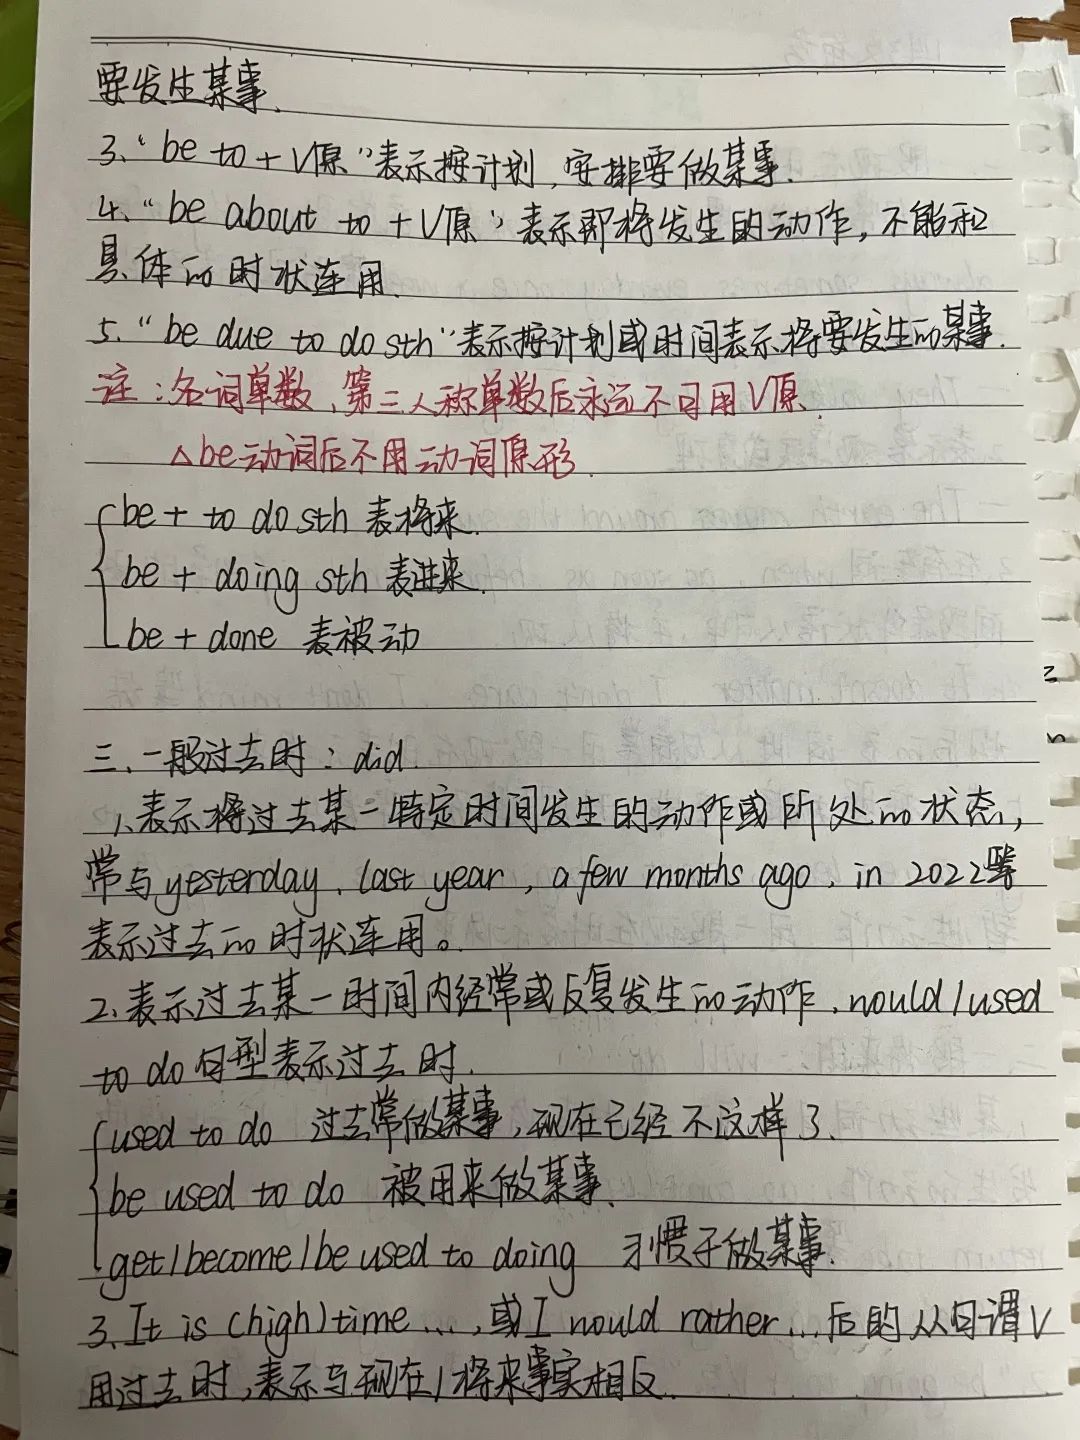 要发生某事.
3、“be to + V原”表示按计划,安排要做某事.
4、“be about to + V原”表示即将发生的动作,不能和
具体的时状连用.
5、“be due to do sth”表示按计划或时间表示将要发生的某事.
注:名词单数、第三人称单数后永远不可用V原.
△be动词后不用动词原形.
be + to do sth 表将来.
be + doing sth 表进来.
be + done 表被动
三、一般过去时:did.
1、表示将过去某一特定时间发生的动作或所处的状态,
常与yesterday、last year, a few months ago、in 2022等
表示过去的时状连用。
2、表示过去某一时间内经常或反复发生的动作、would/used
to do句型表示过去时.
used to do 过去常做某事,现在已经不这样了.
be used to do 被用来做某事.
get/become/be used to doing 习惯于做某事.
3、It is (high) time ...,或I would rather...后的从句谓V
用过去时,表示与现在/将来事实相反.